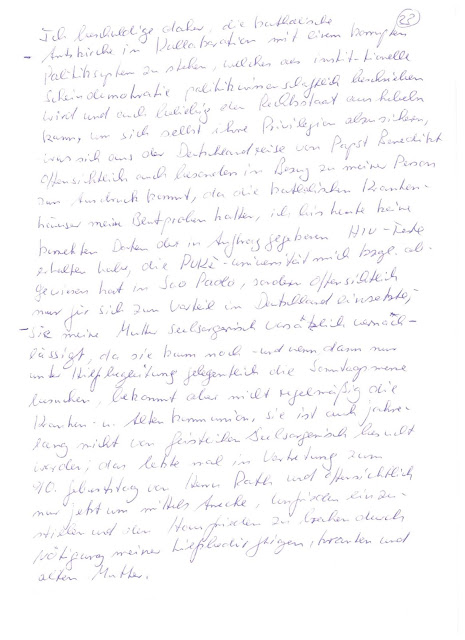 23
Ich beschuldige daher, die katholische
- Amtskirche in Kollaboration mit einem korrupten
Politiksystem zu stehen, welches als institutionelle
Scheindemokratie politikwissenschaftlich beschrieben
wird und auch beliebig den Rechtsstaat aushebeln
kann, um sich selbst ihre Privilegien abzusichern,
was sich aus der Deutschlandreise von Papst Benedikt
offensichtlich auch besonders in Bezug zu meiner Person
zum Ausdruck kommt, da die katholischen Kranken-
häuser meine Blutproben hatten, ich bis heute keine
korrekten Daten der in Auftrag gegebenen HIV-Teste
erhalten habe, die PUK-Universität mich bzgl. ab-
gewiesen hat in Sao Paolo, sondern offensichtlich
nur für sich zum Vorteil in Deutschland einsetzte,
- sie meine Mutter seelsorgerisch vorsätzlich vernach-
lässigt, da sie kaum noch - und wenn dann nur
unter Begleitung gelegentlich die Sonntagsmesse
besuchen, bekommt aber nicht regelmäßig die
Kranken- u. Altenkommunion, sie ist auch jahre-
lang nicht von Geistlichen seelsorgerisch besucht
worden; das letzte mal in Vertretung zum
90. Geburtstag von Herrn und offensichtlich
nur jetzt um mittels Unfrieden einzu-
und den Hausfrieden zu brechen durch
Nötigung meiner kranken und
alten Mutter.